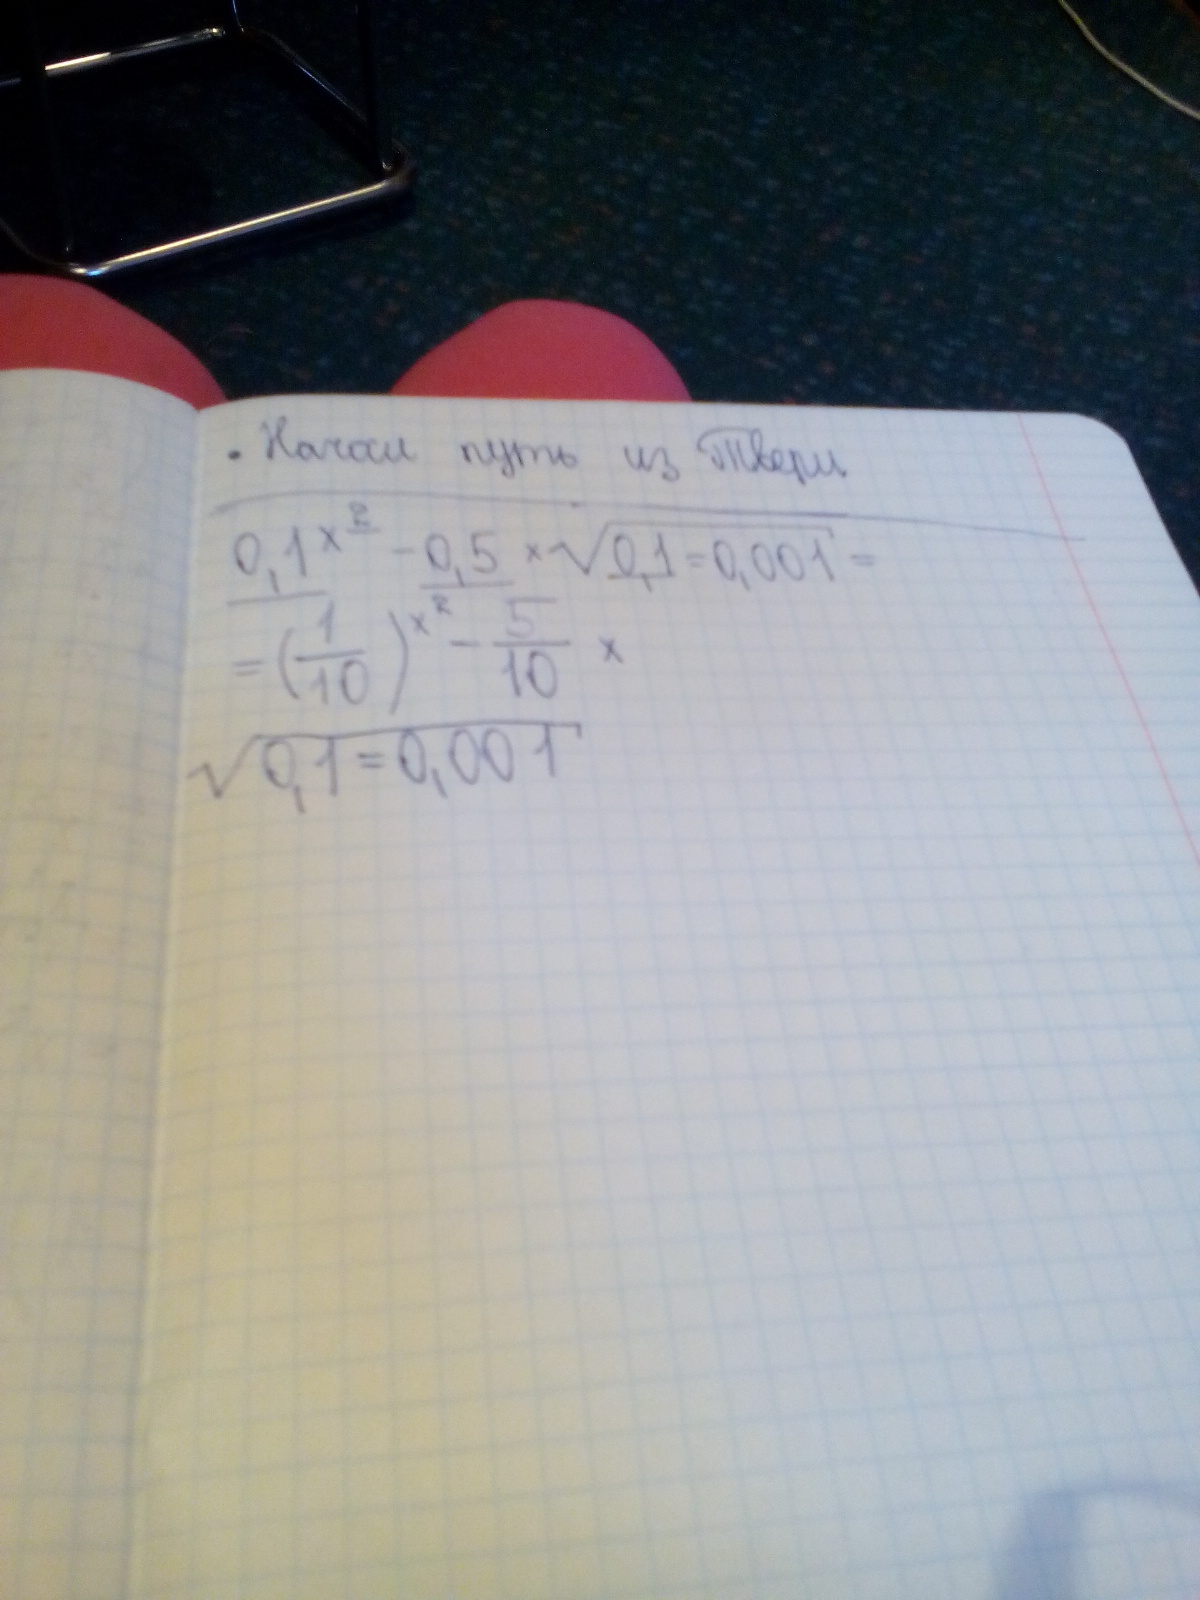 • Начал путь из Твери
0,1^x^2 - 0,5 × √0,1 = 0,001 =
= (1/10)^x^2 - 5/10 ×
√0,1 = 0,001